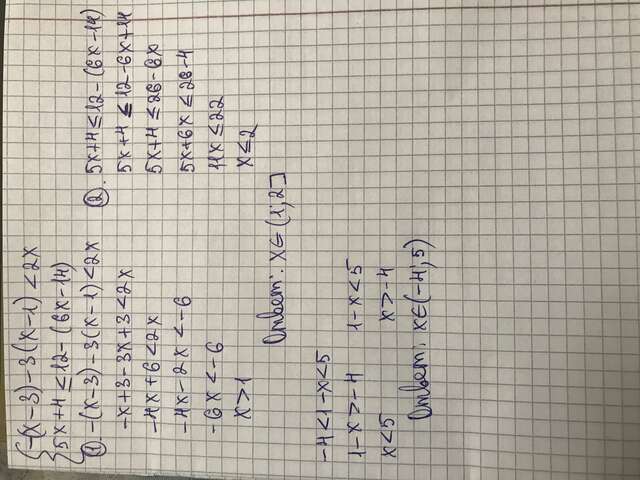 -(x-3)-3(x-1)<2x
5x+4≤12-(6x-14)
①. -(x-3)-3(x-1)<2x
-x+3-3x+3<2x
-4x+6<2x
-4x-2x<-6
-6x<-6
x>1
②. 5x+4≤12-(6x-14)
5x+4≤12-6x+14
5x+4≤26-6x
5x+6x≤26-4
11x≤22
x≤2
Ответ: x∈(1;2]
-4<1-x<5
1-x>-4 1-x<5
x<5 x>-4
Ответ: x∈(-4;5)